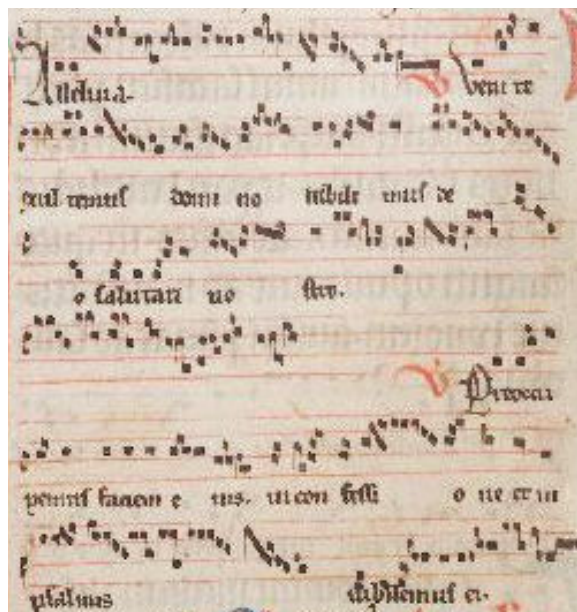 Alleluia. V Venite
exul temus domi no iubile mus de
o salutari no stro.
V Preoccu
pemus faciem e ius. in con fessi o ne et in
psalmis iubilemus ei.